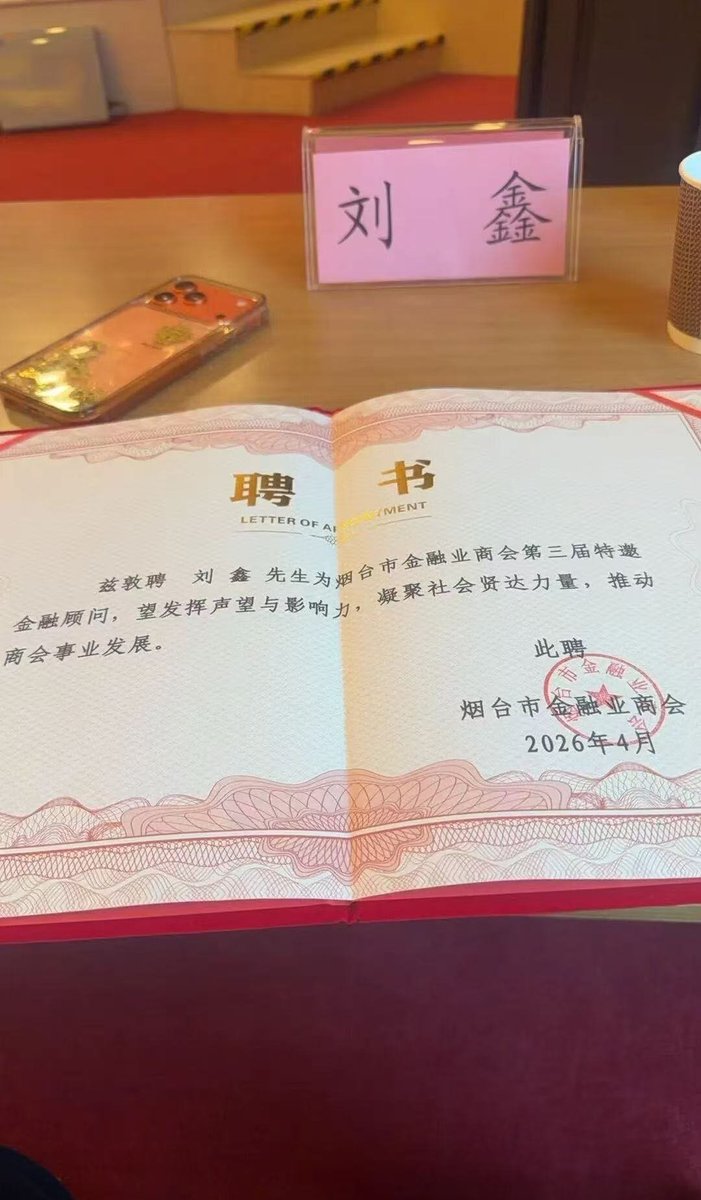 刘 鑫
聘 书
LETTER OF APPOINTMENT
兹敦聘 刘 鑫 先生为烟台市金融业商会第三届特邀
金融顾问，望发挥声望与影响力，凝聚社会贤达力量，推动
商会事业发展。
此聘
烟台市金融业商会
2026年4月